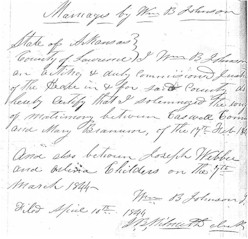 Marriages by Wm B Johnson
State of Arkansas }
County of Lawrence } I Wm B Johnson
an acting & duly commissioned
of the Peace in & for said County do
hereby certify that I solemnized the
of matrimony between Caswell
and May of the 19th Feb 18
And also between Joseph Webber
and Childers on the 7th
March 1844
Wm B Johnson
Filed April 10th 1844